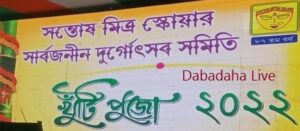 সন্তোষ মিত্র স্কোয়ার
সার্বজনীন দুর্গোৎসব সমিতি
৮৭ তম বর্ষ
Dabadaha Live
খুঁটি পুজো ২০২২